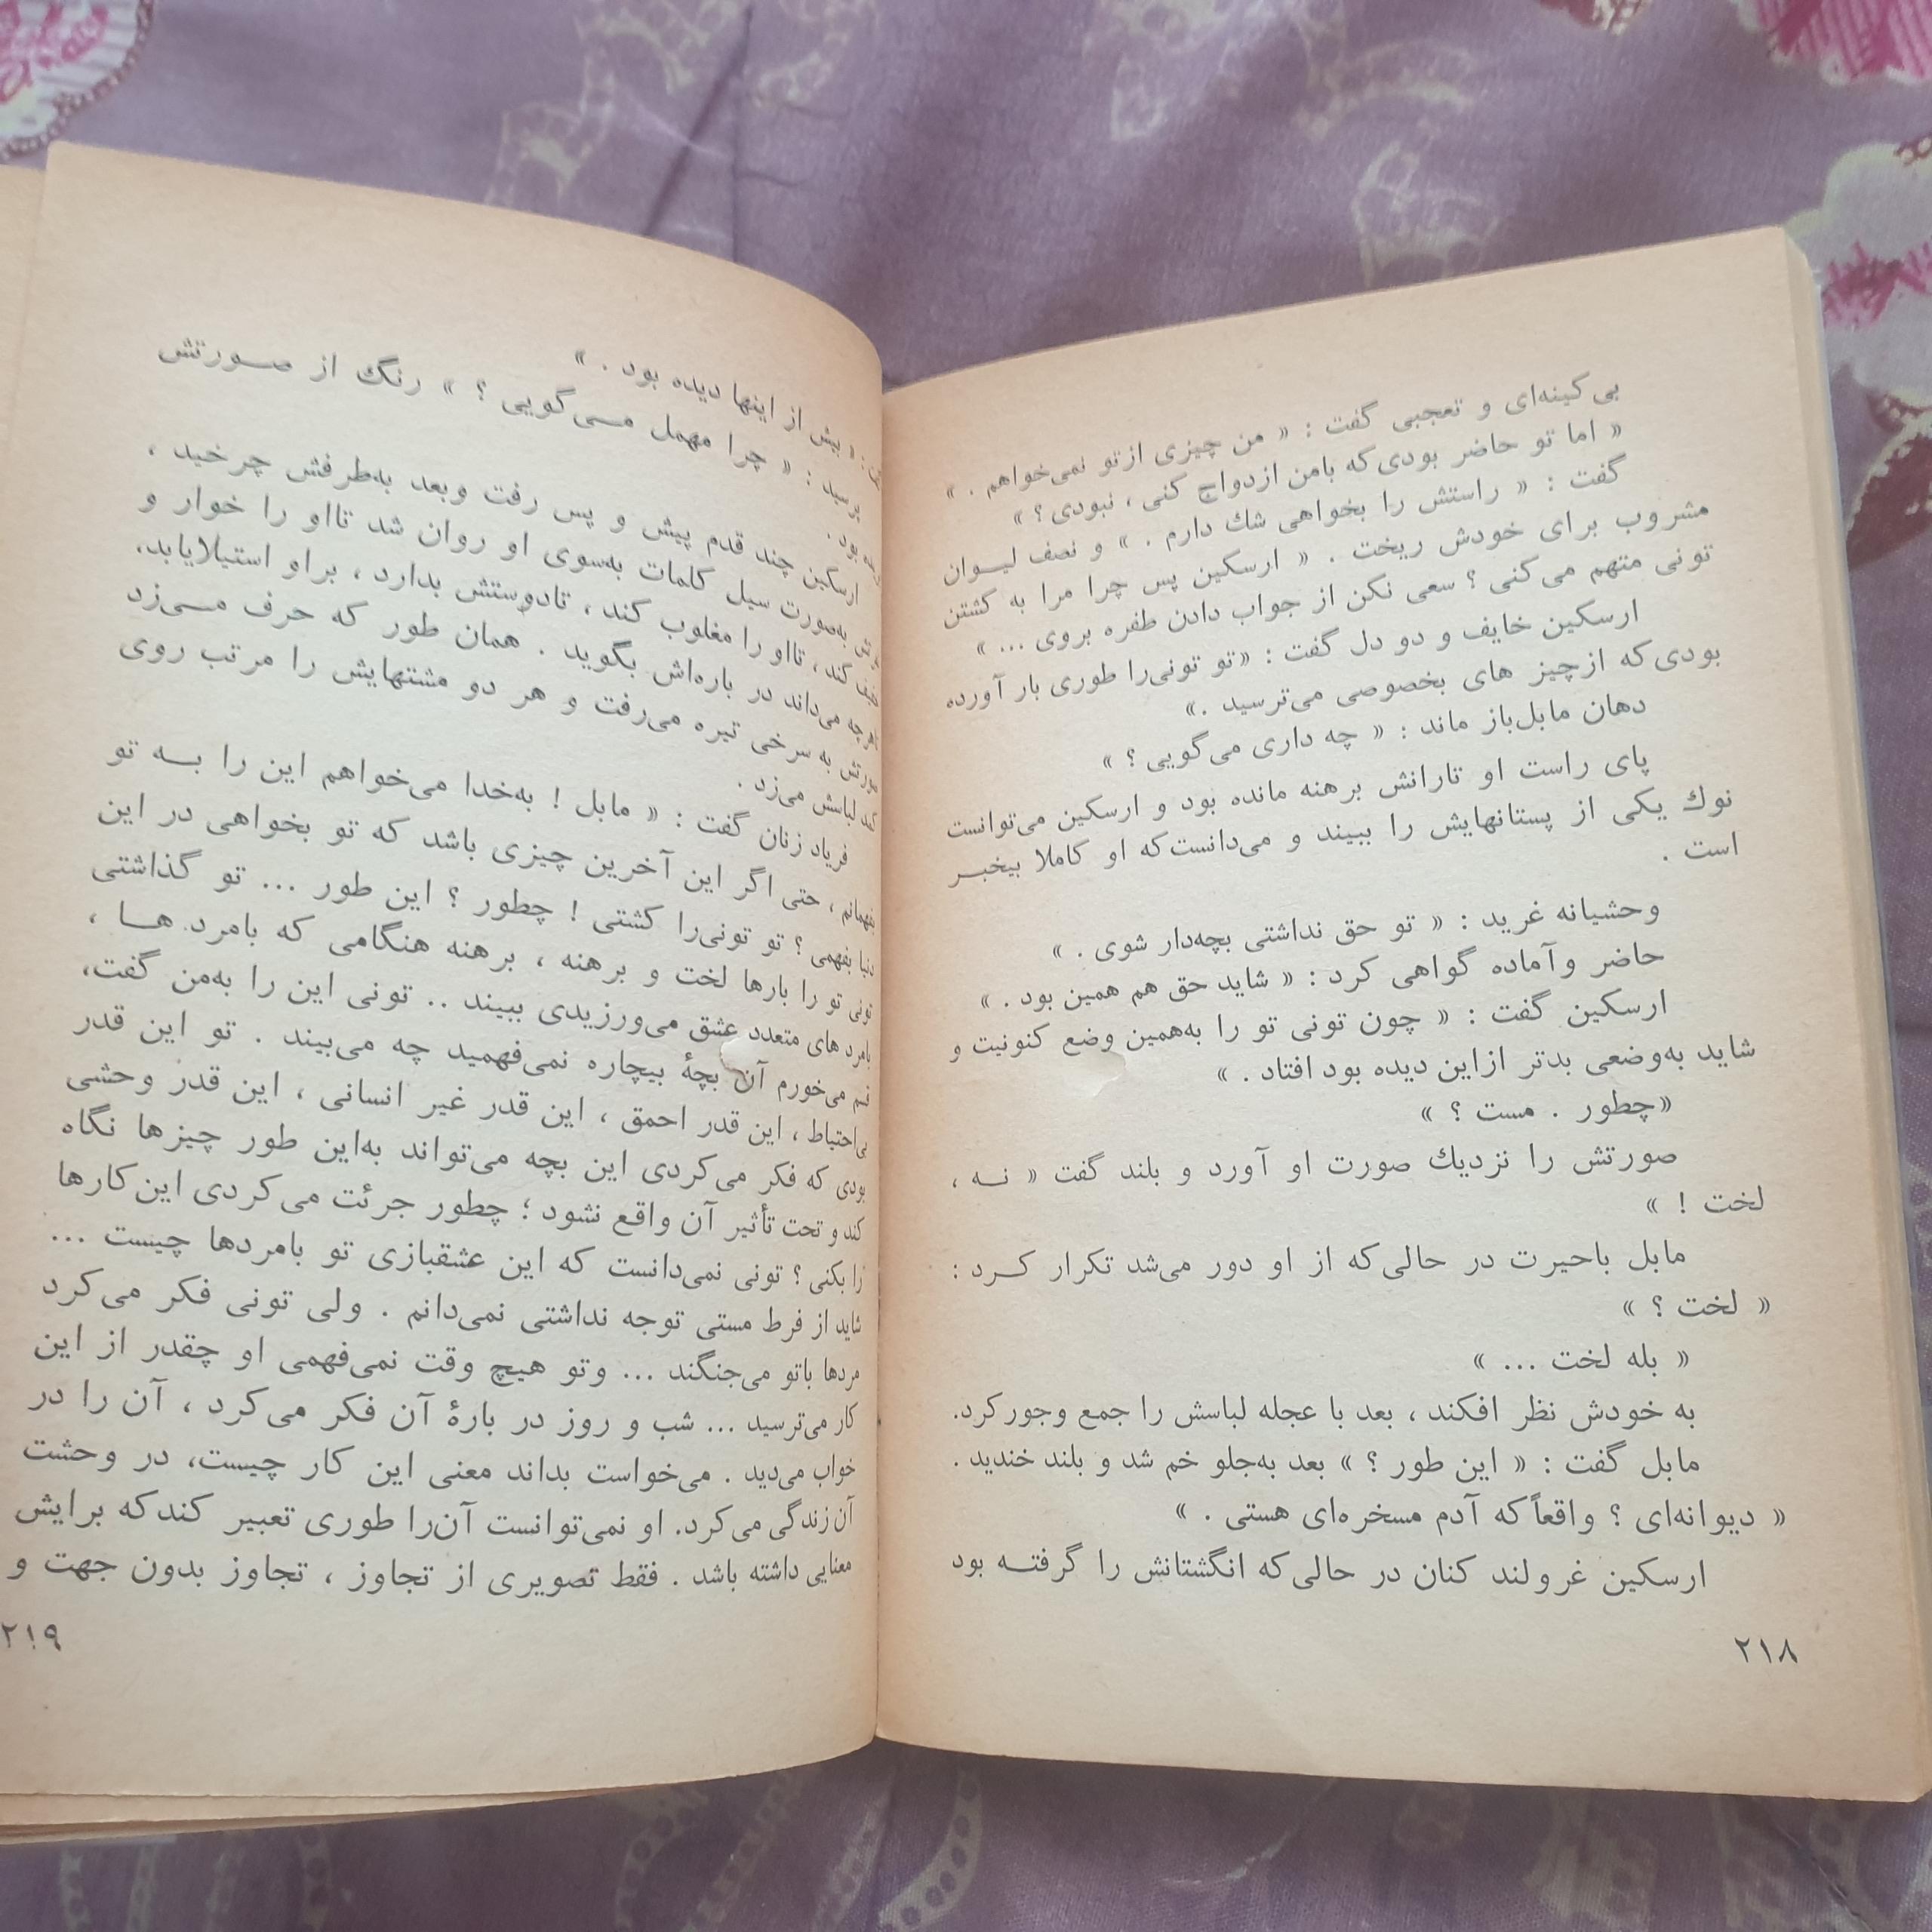 بی‌کینه‌ای و تعجبی گفت : « من چیزی ازتو نمی‌خواهم . »
« اما تو حاضر بودی‌که بامن ازدواج کنی ، نبودی ؟ »
گفت : « راستش را بخواهی شك دارم . » و نصف لیـوان
مشروب برای خودش ریخت . « ارسکین پس چرا مرا به کشتن
تونی متهم می‌کنی ؟ سعی نکن از جواب دادن طفره بروی ... »
ارسکین خایف و دو دل گفت : «تو تونی‌را طوری بار آورده
بودی‌که ازچیز های بخصوصی می‌ترسید .»
دهان مابل‌باز ماند : « چه داری می‌گویی ؟ »
پای راست او تارانش برهنه مانده بود و ارسکین می‌توانست
نوك یکی از پستانهایش را ببیند و می‌دانست‌که او کاملا بیخبـر
است .
وحشیانه غرید : « تو حق نداشتی بچه‌دار شوی . »
حاضر وآماده گواهی کرد : « شاید حق هم همین بود . »
ارسکین گفت : « چون تونی تو را به‌همین وضع کنونیت و
شاید به‌وضعی بدتر ازاین دیده بود افتاد . »
«چطور . مست ؟ »
صورتش را نزدیك صورت او آورد و بلند گفت « نـه ،
لخت ! »
مابل باحیرت در حالی‌که از او دور می‌شد تکرار کـرد :
« لخت ؟ »
« بله لخت ... »
به خودش نظر افکند ، بعد با عجله لباسش را جمع وجورکرد.
مابل گفت : « این طور ؟ » بعد به‌جلو خم شد و بلند خندید .
« دیوانه‌ای ؟ واقعاً که آدم مسخره‌ای هستی . »
ارسکین غرولند کنان در حالی‌که انگشتانش را گرفتـه بود
۲۱۸
: « بیش از اینها دیده بود . »
پرسید : « چرا مهمل مـی‌گویی ؟ » رنگ از صـورتش
بود .
ارسکین چند قدم پیش و پس رفت وبعد به‌طرفش چرخید ،
به‌صورت سیل کلمات به‌سوی او روان شد تااو را خوار و
خفیف کند ، تااو را مغلوب کند ، تادوستش بدارد ، براو استیلایابد.
هرچه می‌داند در باره‌اش بگوید . همان طور که حرف مـی‌زد
صورتش به سرخی تیره می‌رفت و هر دو مشتهایش را مرتب روی
لباسش می‌زد .
فریاد زنان گفت : « مابل ! به‌خدا می‌خواهم این را بـه تو
بفهمانم ، حتی اگر این آخرین چیزی باشد که تو بخواهی در این
دنیا بفهمی ؟ تو تونی‌را کشتی ! چطور ؟ این طور ... تو گذاشتی
تونی تو را بارها لخت و برهنه ، برهنه هنگامی که بامرد هـا ،
بامرد های متعدد عشق می‌ورزیدی ببیند .. تونی این را به‌من گفت،
قسم می‌خورم آن بچهٔ بیچاره نمی‌فهمید چه می‌بیند . تو این قدر
بی‌احتیاط ، این قدر احمق ، این قدر غیر انسانی ، این قدر وحشی
بودی که فکر می‌کردی این بچه می‌تواند به‌این طور چیزها نگاه
کند و تحت تأثیر آن واقع نشود ؛ چطور جرئت می‌کردی این‌کارها
را بکنی ؟ تونی نمی‌دانست که این عشقبازی تو بامردها چیست ...
شاید از فرط مستی توجه نداشتی نمی‌دانم . ولی تونی فکر می‌کرد
مردها باتو می‌جنگند ... وتو هیچ وقت نمی‌فهمی او چقدر از این
کار می‌ترسید ... شب و روز در بارهٔ آن فکر می‌کرد ، آن را در
خواب می‌دید . می‌خواست بداند معنی این کار چیست، در وحشت
آن زندگی می‌کرد. او نمی‌توانست آن‌را طوری تعبیر کندکه برایش
معنایی داشته باشد . فقط تصویری از تجاوز ، تجاوز بدون جهت و
۲۱۹